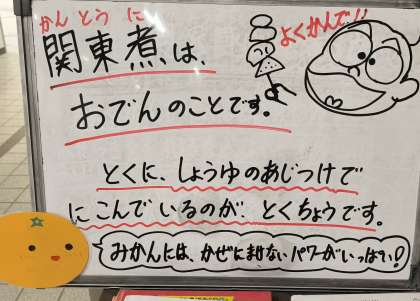 かんとうに
関東煮は、
よくかんで!!
おでんのことです。
とくに、しょうゆのあじつけで
にこんでいるのが、とくちょうです。
みかんには、かぜにまけないパワーがいっぱい!